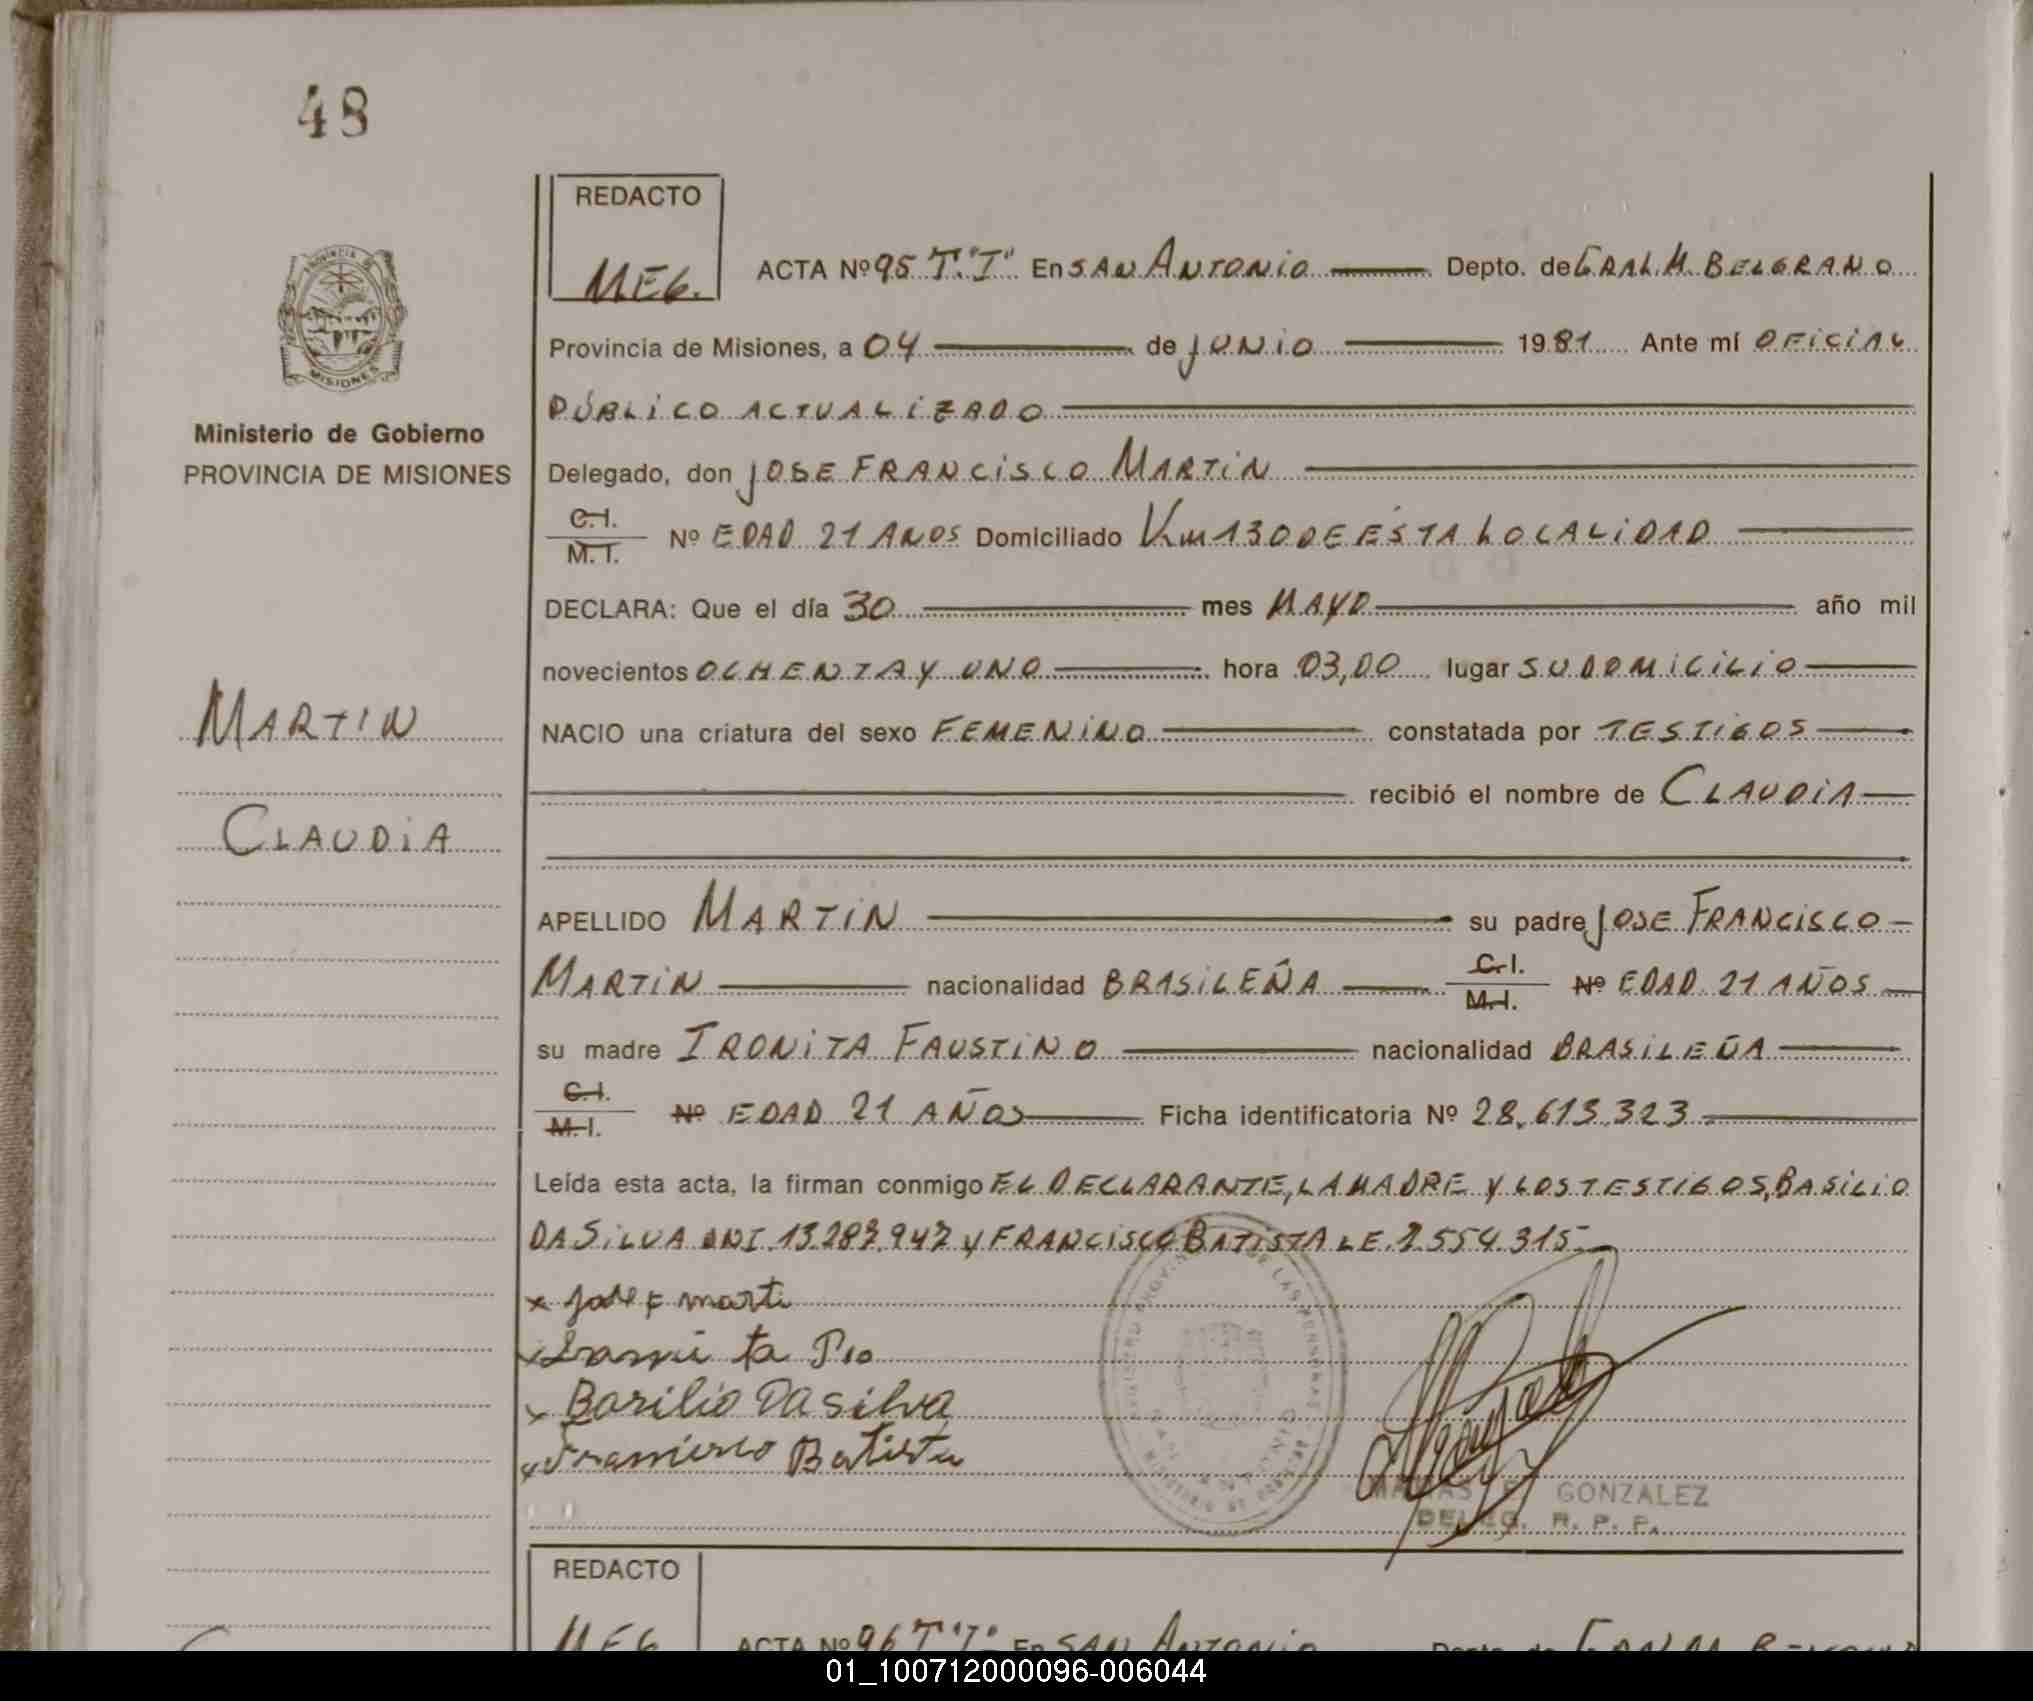 48
REDACTO
MEG.
ACTA Nº 95 T."I" En SAN ANTONIO Depto. de GRAL M. BELGRANO
PROVINCIA DE
MISIONES
Provincia de Misiones, a 04 de JUNIO 1981 Ante mí OFICIAL
PÚBLICO ACTUALIZADO
Ministerio de Gobierno
PROVINCIA DE MISIONES
Delegado, don JOSE FRANCISCO MARTIN
C.I. M.I. Nº EDAD 21 ANOS Domiciliado Km 130 DE ESTA LOCALIDAD
DECLARA: Que el día 30 mes MAYO año mil
novecientos OCHENTA Y UNO hora 03,00 lugar SU DOMICILIO
MARTIN
NACIO una criatura del sexo FEMENINO constatada por TESTIGOS
recibió el nombre de CLAUDIA
CLAUDIA
APELLIDO MARTIN su padre JOSE FRANCISCO
MARTIN nacionalidad BRASILEÑA C.I. M.I. Nº EDAD 21 AÑOS
su madre IRONITA FAUSTINO nacionalidad BRASILEÑA
C.I. M.I. Nº EDAD 21 AÑOS Ficha identificatoria Nº 28.613.323
Leída esta acta, la firman conmigo EL DECLARANTE, LA MADRE Y LOS TESTIGOS, BASILIO
DA SILVA DNI 13.287.947 y FRANCISCO BATISTA LE. 7.554.315
x Jose F marti
x ta
x Basilio Da silva
x Francisco Batista
MATIAS E. GONZALEZ
DELEG. R. P. P.
REDACTO
MEG
ACTA Nº 96 T"I" En SAN ANTONIO Depto. de GRAL M. BELGRANO
01_100712000096-006044